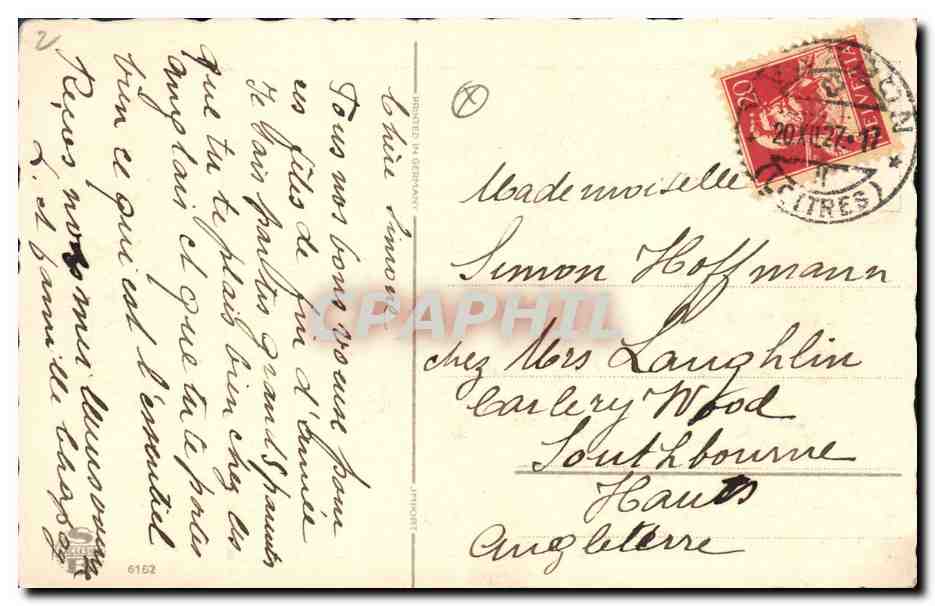 2
Chère Simone
Tous nos bons voeux pour
ces fêtes de fin d'année
Je sais par tes grands parents
que tu te plais bien chez les
anglais et que tu te portes
bien ce qui est l'essentiel
Reçois nos meilleurs
L. et famille
PRINTED IN GERMANY
IMPORT
6162
CPAPHIL
HELVETIA
20
20.XII.27.-17
(LETTRES)
Mademoiselle
Simon Hoffmann
chez Mrs Laughlin
Carlery Wood
Southbourne
Hants
Angleterre